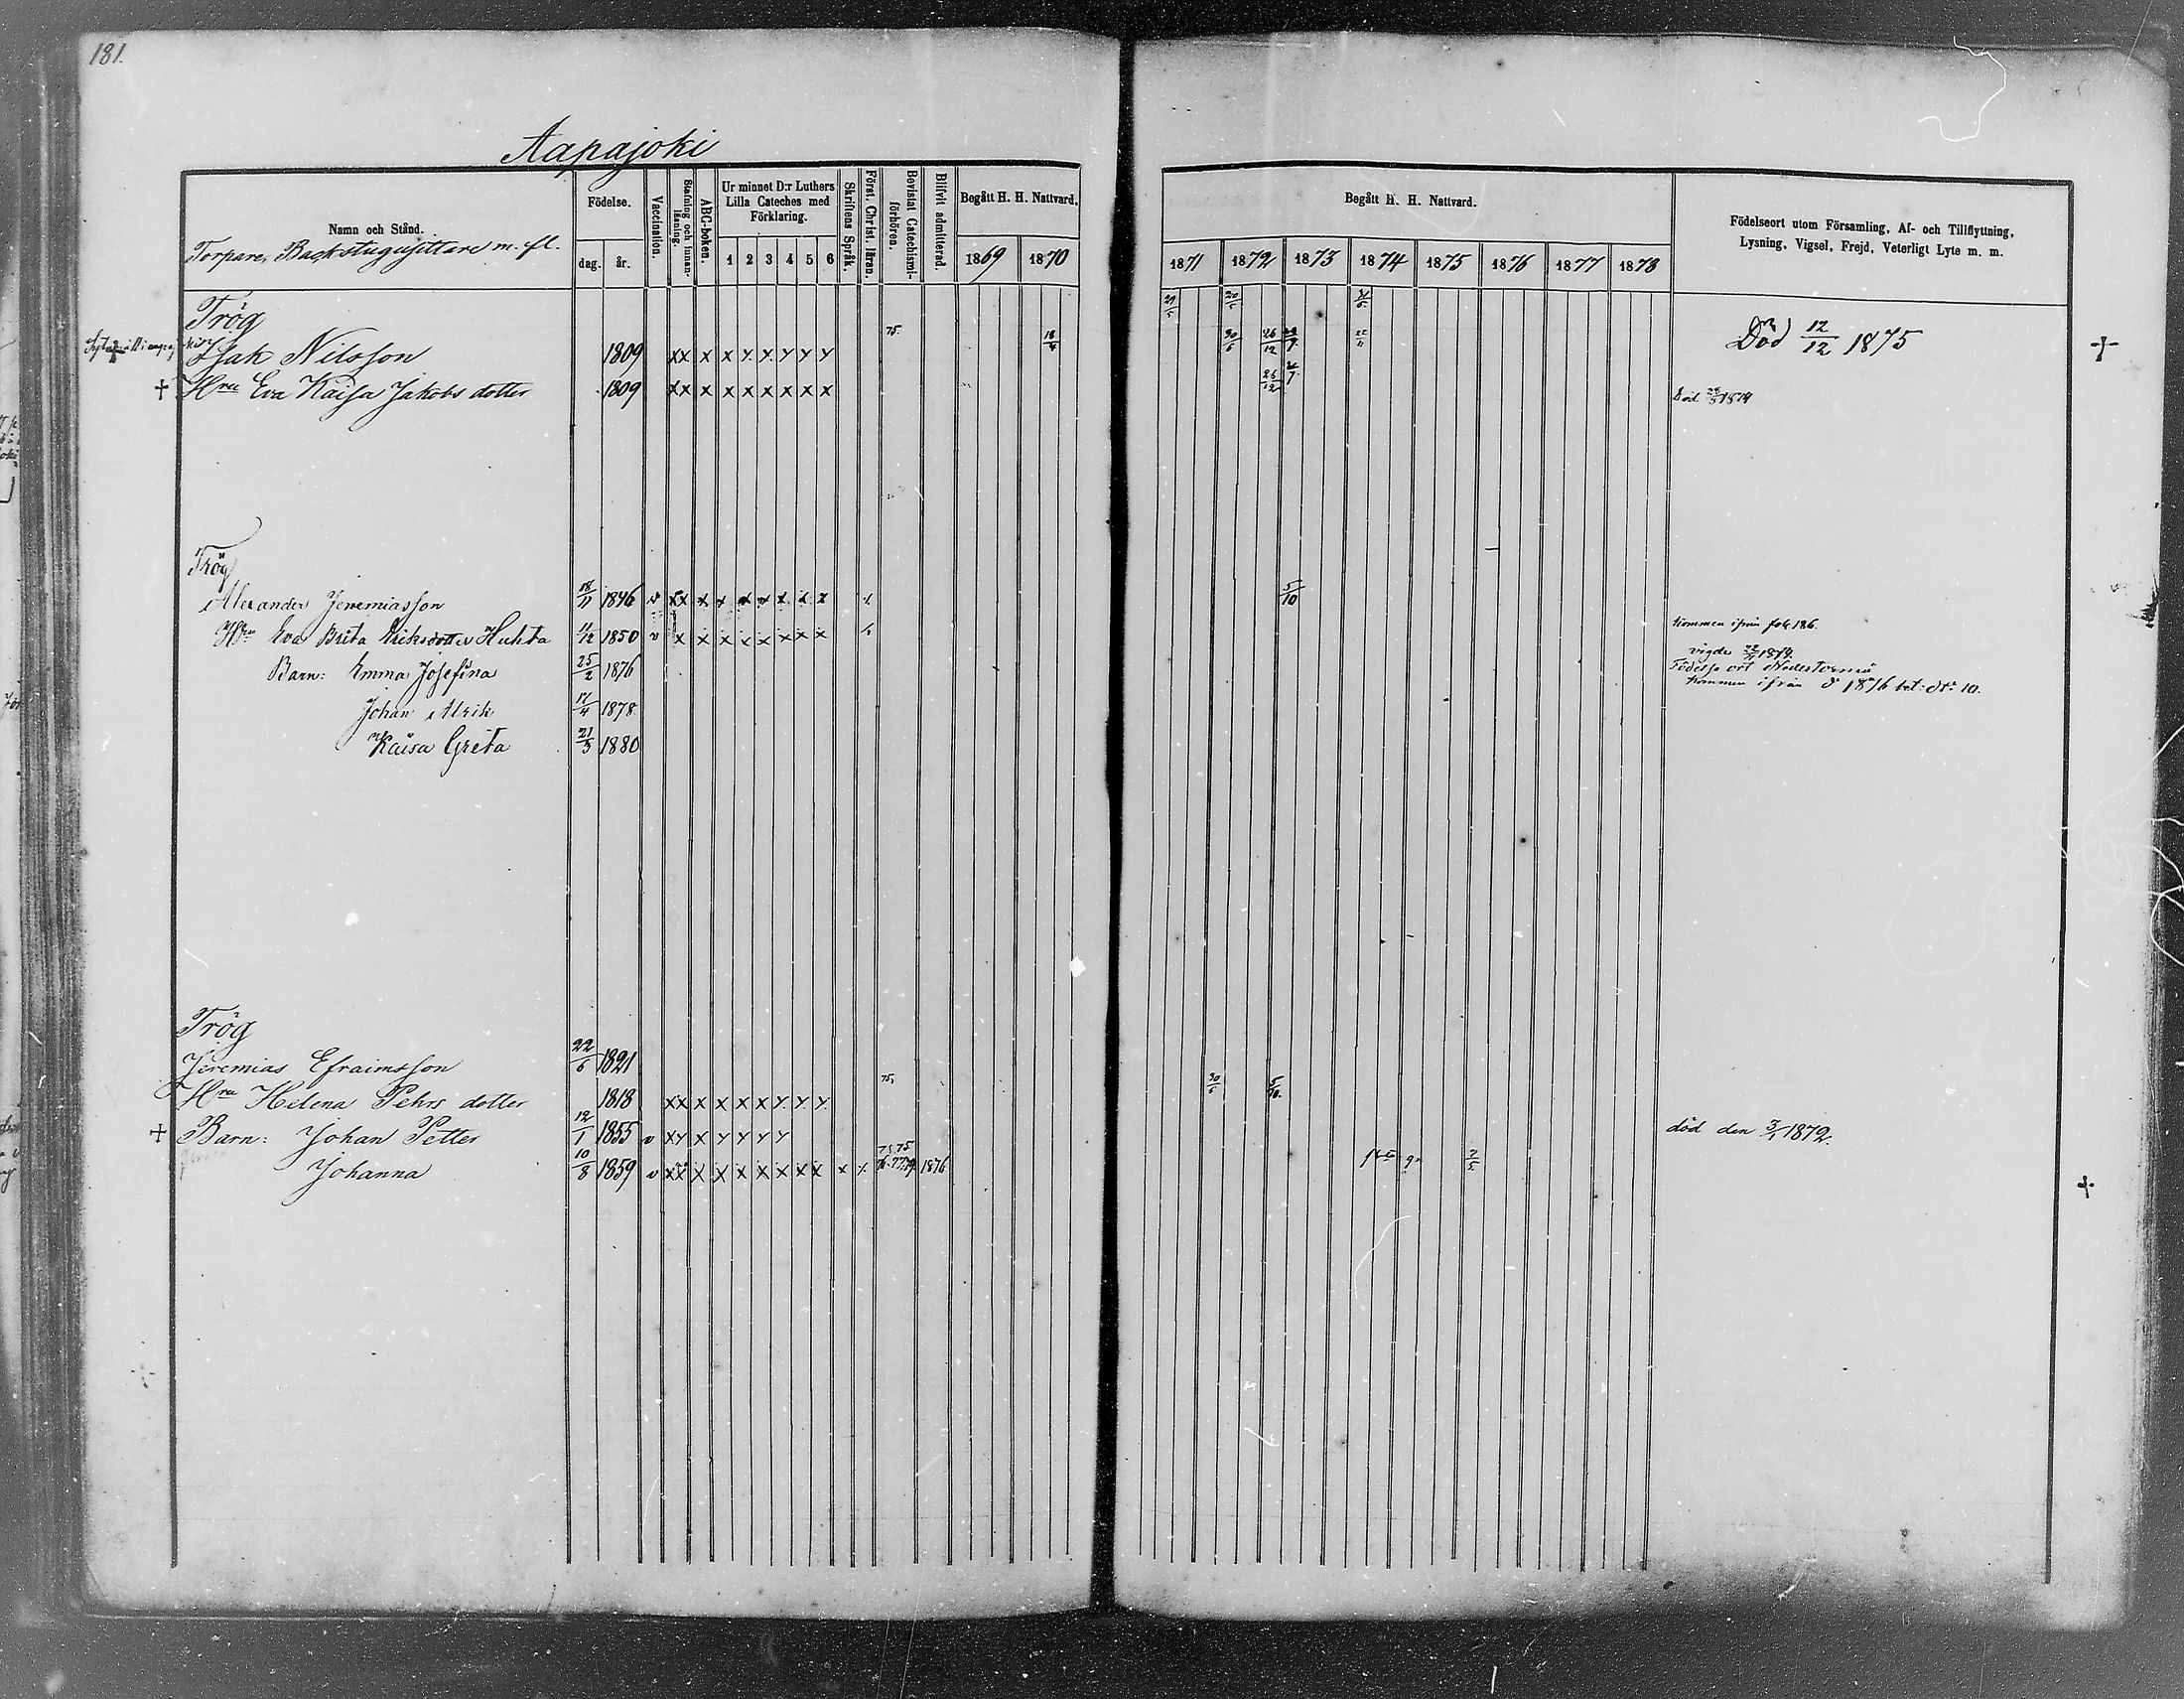 181.
Aapajoki
Namn och Stånd.
Torpare, Backstugusittare m. fl.
Födelse.
dag. år.
Vaccination.
Stafning och innanläsning.
ABC-boken.
Ur minnet D:r Luthers
Lilla Cateches med
Förklaring.
1 2 3 4 5 6
Skriftens Språk.
Först. Christ. läran.
Bevistat Catechismi-
förhören.
Blifvit admitterad.
Begått H. H. Nattvard.
1869 1870
Begått H. H. Nattvard.
1871 1872 1873 1874 1875 1876 1877 1878
Födelseort utom Församling, Af- och Tillflyttning,
Lysning, Vigsel, Frejd, Veterligt Lyte m. m.
Trög
75.
Isak Nilsson 1809 xx x x y y y y y 18/4 Död 12/12 1875 +
+ Hru Eva Kaisa Jakobs dotter 1809 xx x x x x x x x 26/12 Död 1874
Trög
Alexander Jeremiasson 18/11 1846 v xx x x x x x x x 5/10
Hru Eva Brita Eriksdotter Huhta 11/12 1850 v x x x x x x x x kommen ifrån fol. 186.
vigde 1874.
Födelse ort Nedertorneå
Barn: Emma Josefina 25/2 1876 kommen ifrån d 1876 bet: N: 10.
Johan Alrik 17/4 1878
Kaisa Greta 21/3 1880
Trög
Jeremias Efraimsson 22/6 1821
75.
Hru Helena Pehrs dotter 1818 xx x x x x y y y 30/6 5/10.
+ Barn: Johan Petter 12/1 1855 v xy x y y y y död den 3/1 1872.
Johanna 10/8 1859 v xx x x x x x x x x 1876 2/5 +